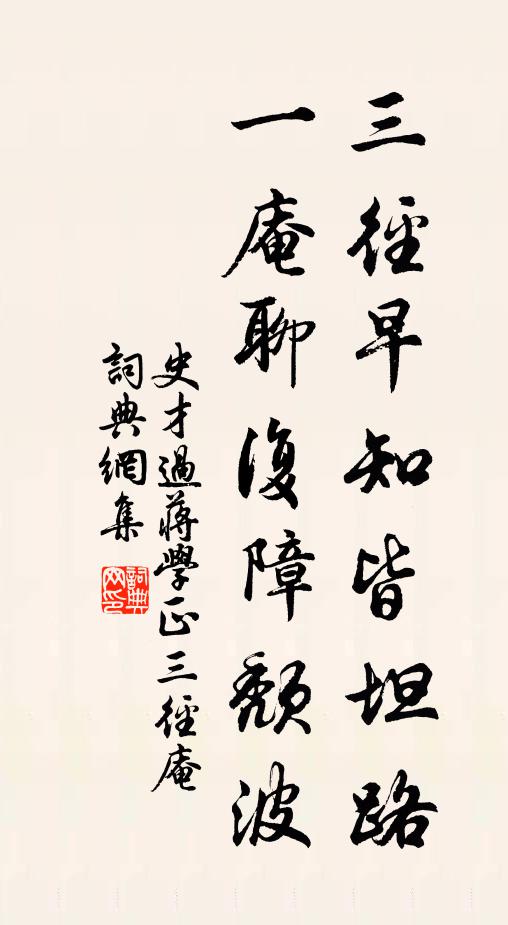 三徑早知皆坦路
一庵聊復障頽波
史才過蔣學正三徑庵
詞典網集
詞典
网印